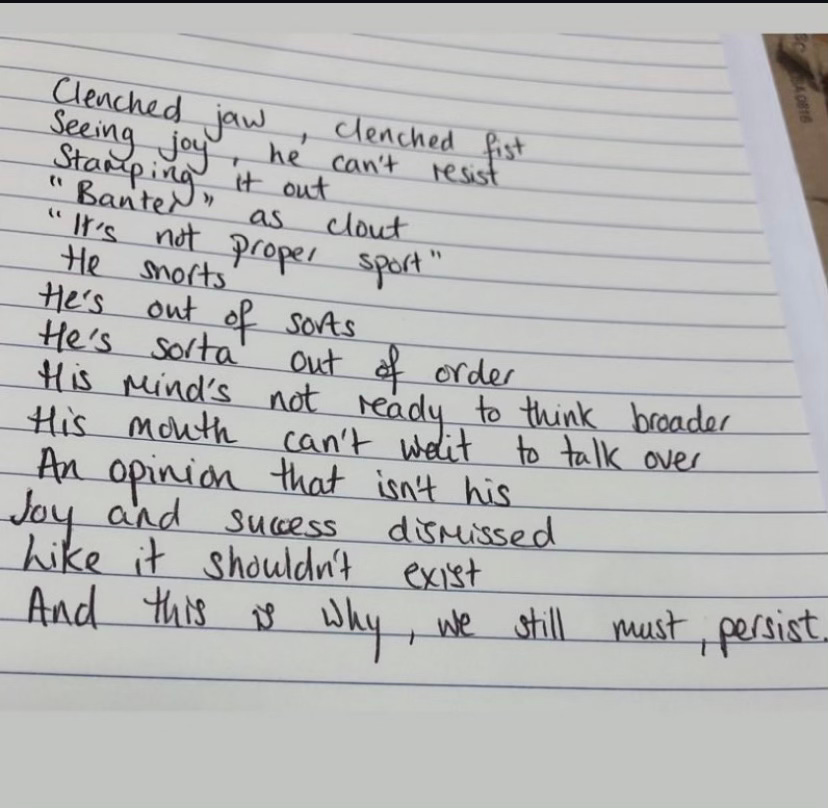 Clenched jaw, clenched fist
Seeing joy, he can't resist
Stamping it out
"Banter" as clout
"It's not proper sport"
He snorts
He's out of sorts
He's sorta out of order
His mind's not ready to think broader
His mouth can't wait to talk over
An opinion that isn't his
Joy and success dismissed
Like it shouldn't exist
And this is why, we still must, persist.